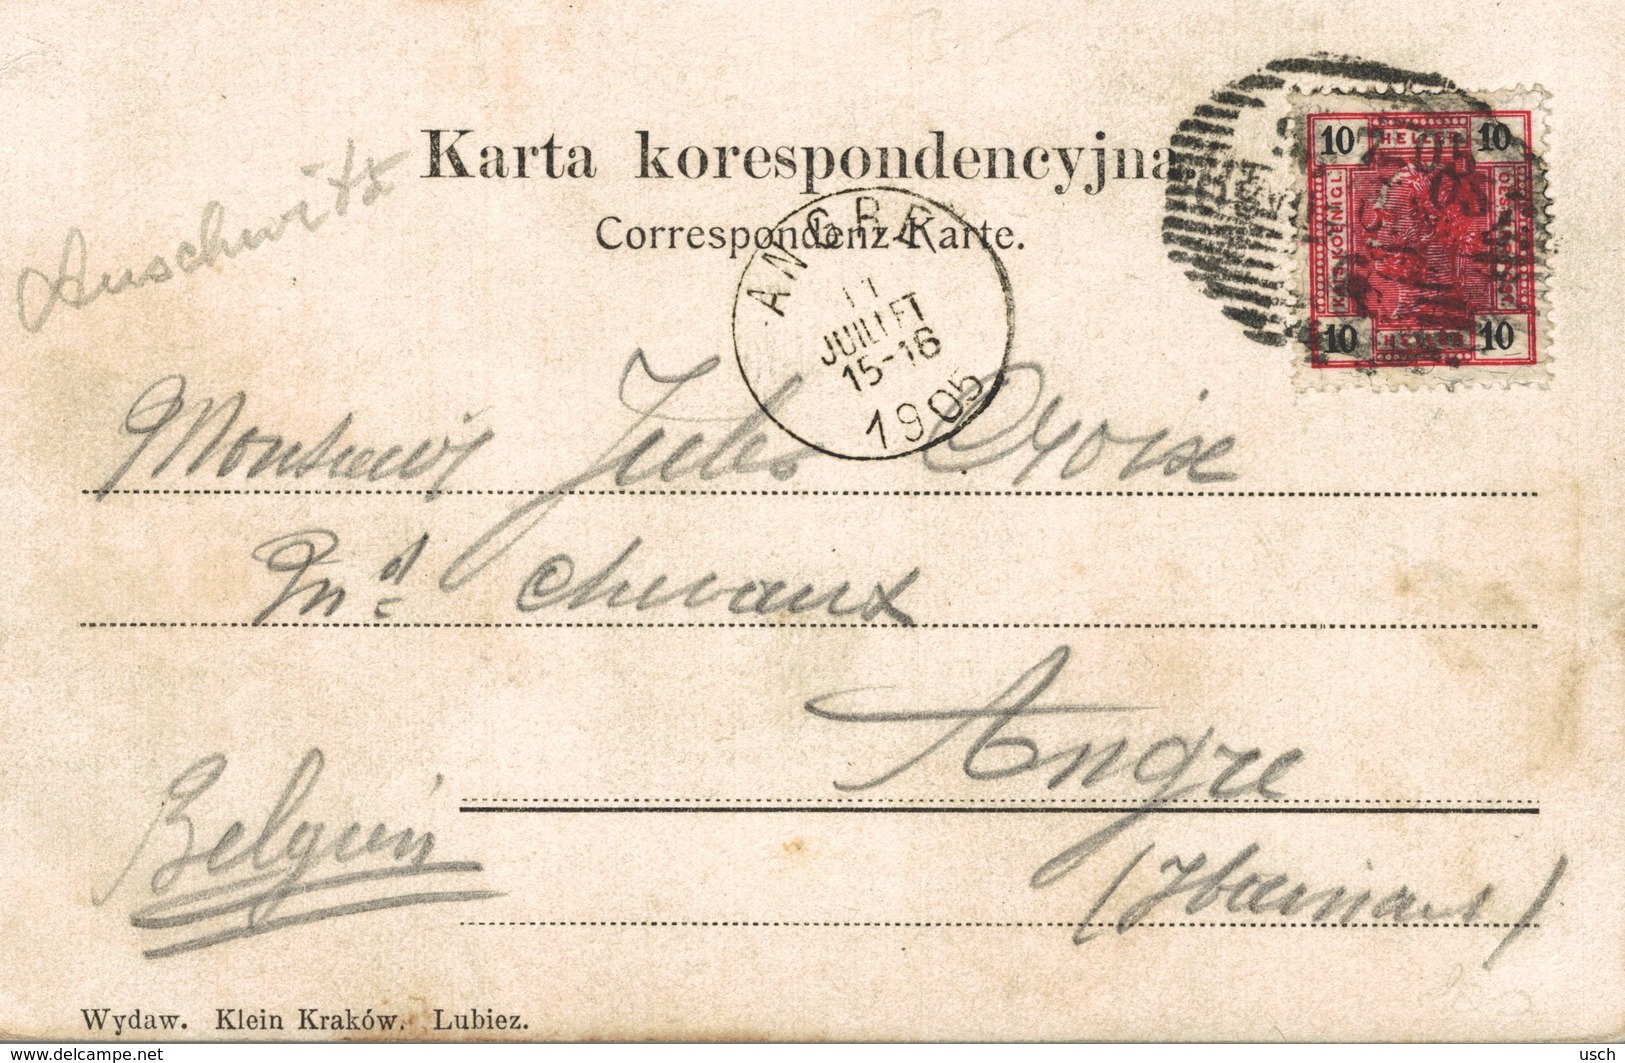 Karta korespondencyjna
Correspondenz-Karte.
Auschwitz
ANGRE
11
JUILLET
15-16
1905
10 HELLER 10
KAIS. KOENIGL.
10 HELLER 10
Monsieur Jules
Md chevaux
Angre
Belgien
(Hainaut)
Wydaw. Klein Kraków. Lubiez.
delcampe.net
usch